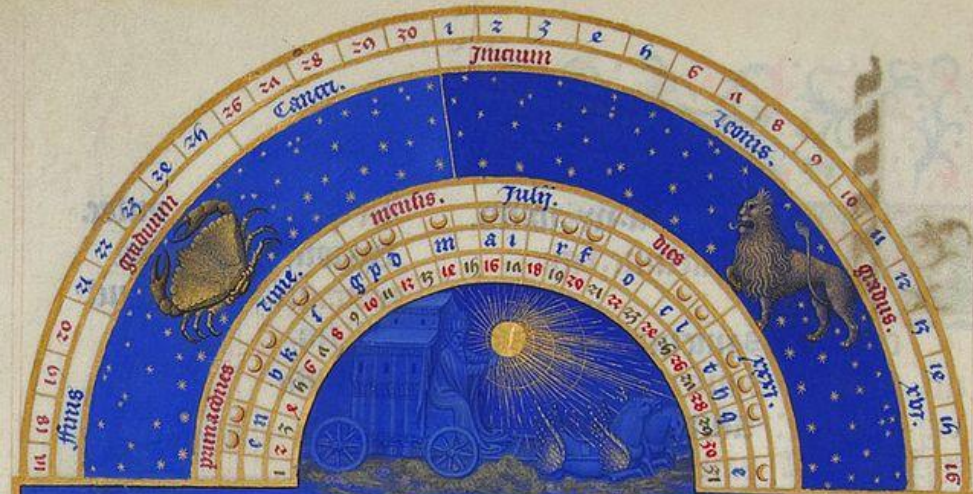 17 18 19 20 21 22 23 24 25 26 27 28 29 30 1 2 3 4 5 6 7 8 9 10 11 12 13 14 15 16
ffinis graduum Cancri. Inicium Leonis. gradus. xvi.
primaciones lune. mensis. Julij. dies xxxi.
b k g p d m a i r f o c l t h q e
1 2 3 4 5 6 7 8 9 10 11 12 13 14 15 16 17 18 19 20 21 22 23 24 25 26 27 28 29 30 31